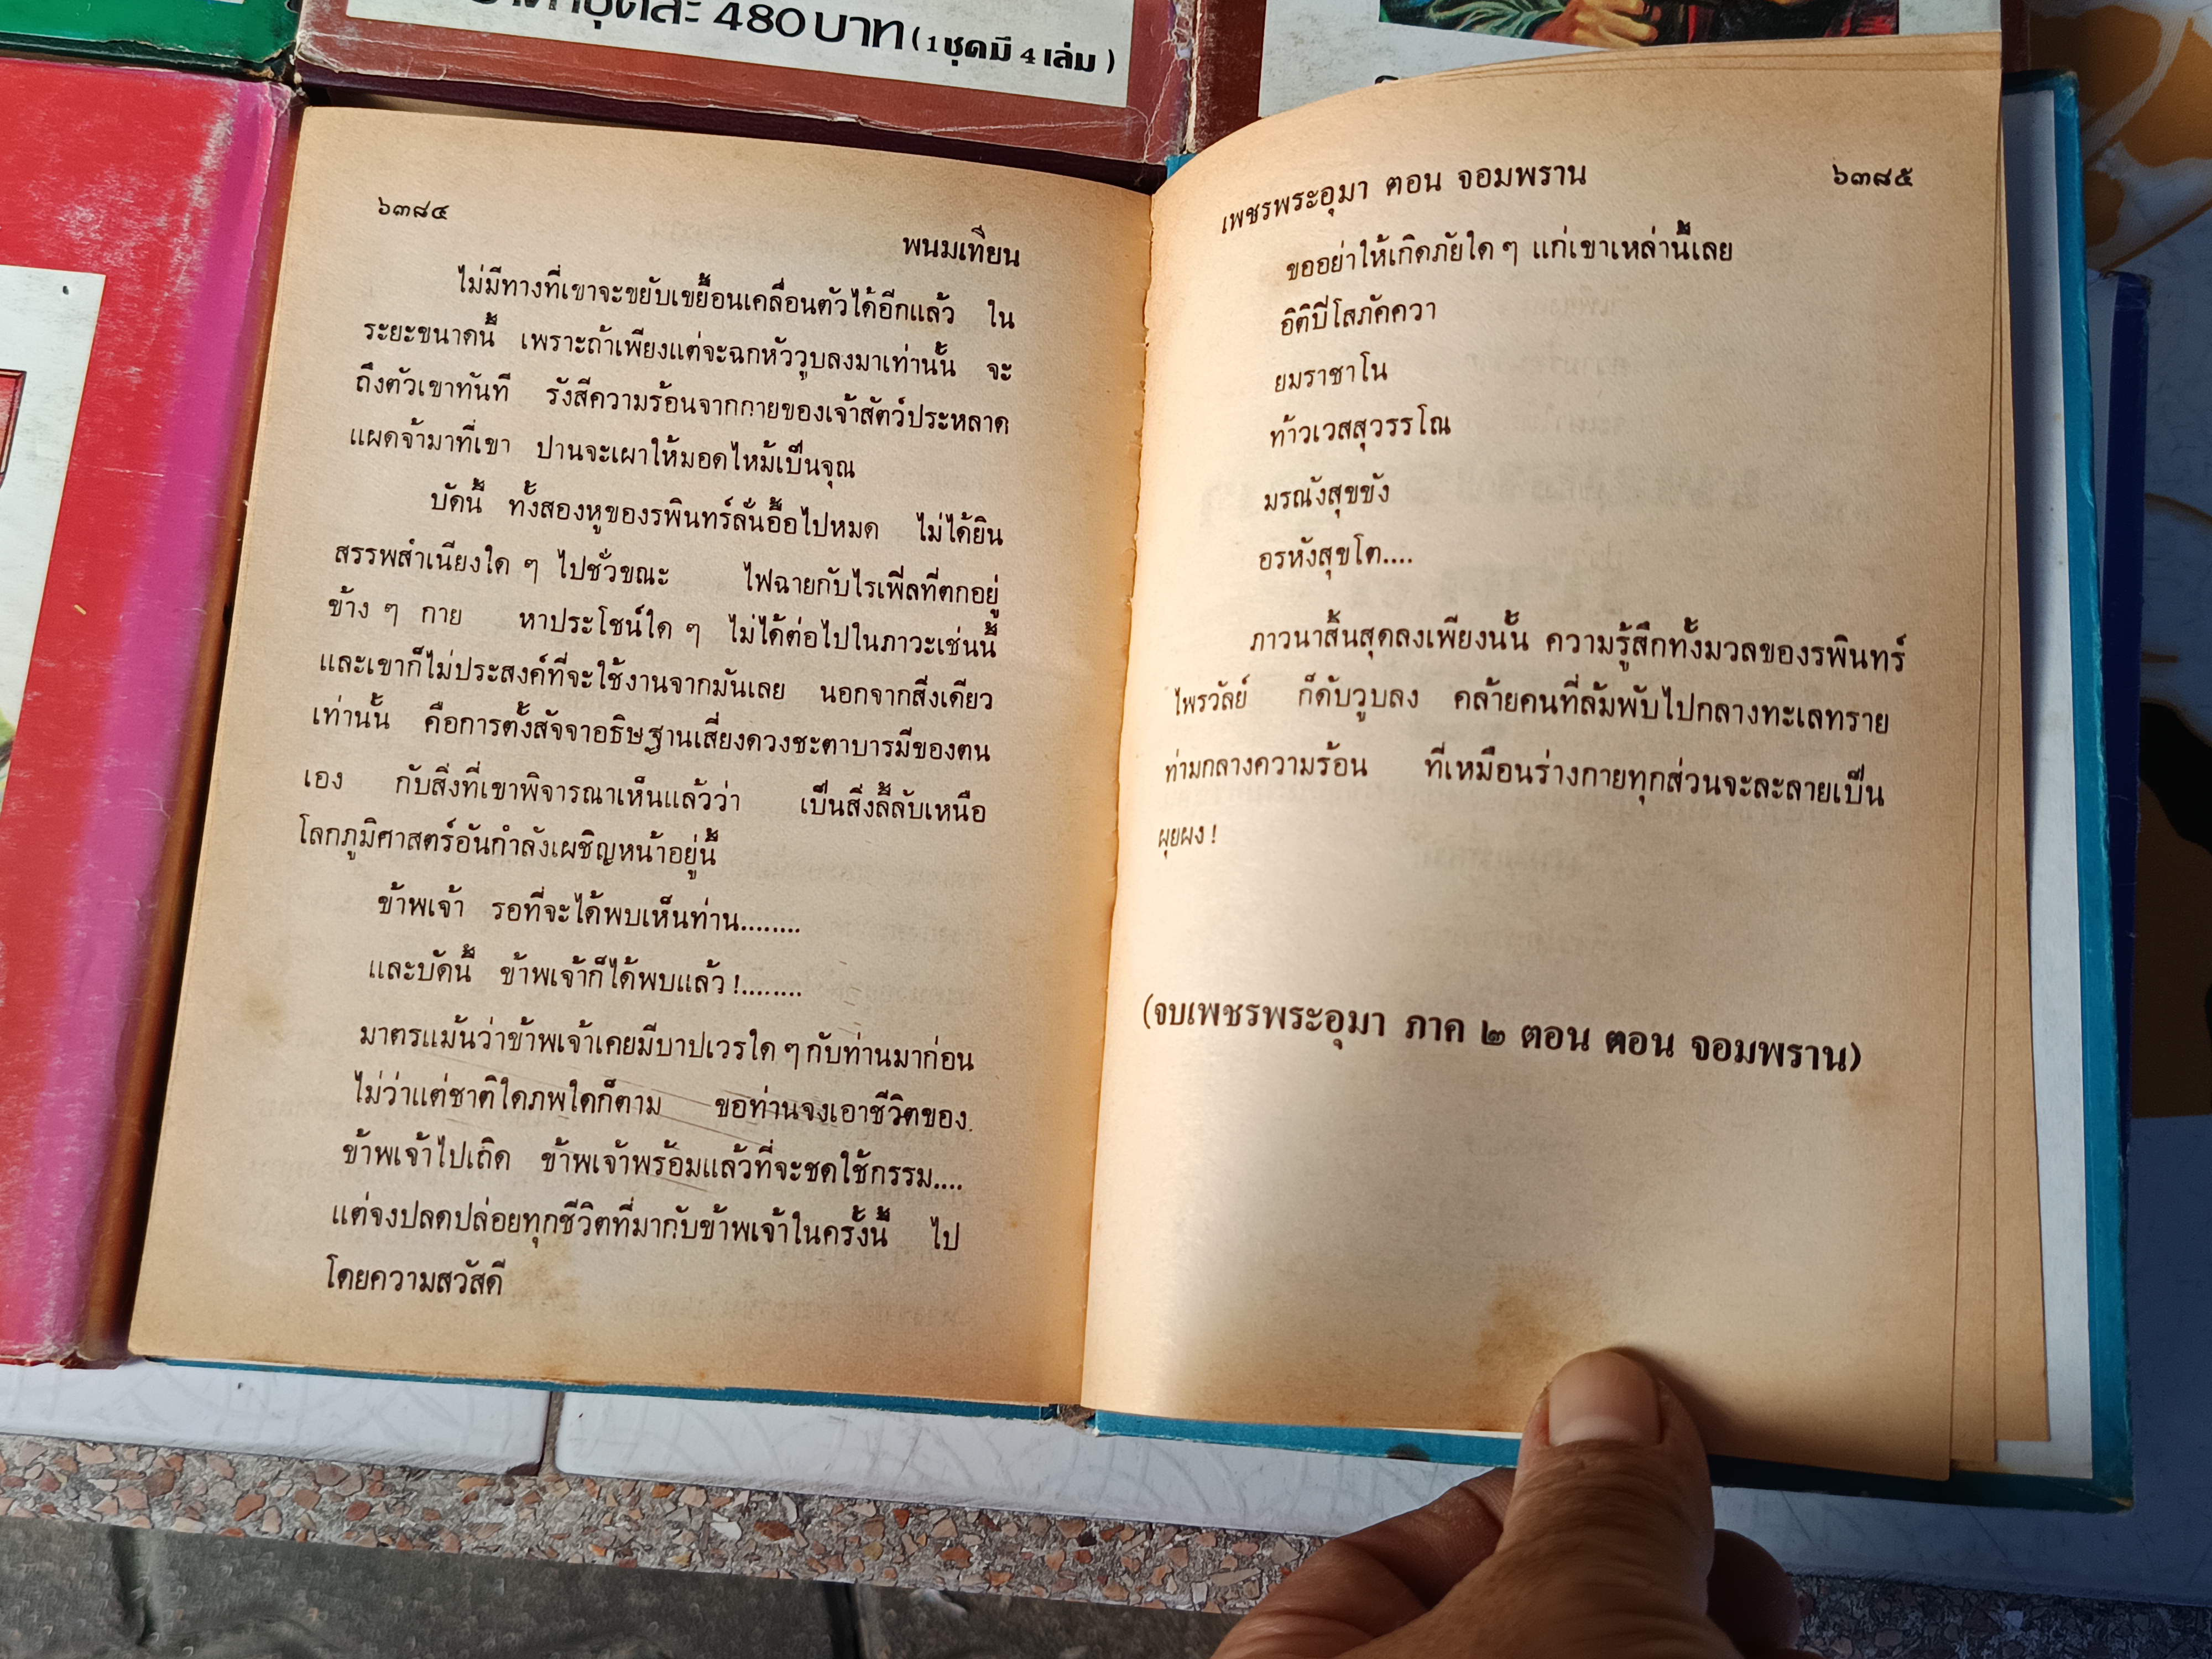 480 บาท (1 ชุดมี 4 เล่ม)
๖๓๘๔
พนมเทียน
ไม่มีทางที่เขาจะขยับเขยื้อนเคลื่อนตัวได้อีกแล้ว ใน
ระยะขนาดนี้ เพราะถ้าเพียงแต่จะฉกหัววูบลงมาเท่านั้น จะ
ถึงตัวเขาทันที รังสีความร้อนจากกายของเจ้าสัตว์ประหลาด
แผดจ้ามาที่เขา ปานจะเผาให้มอดไหม้เป็นจุณ
บัดนี้ ทั้งสองหูของรพินทร์ลั่นอื้อไปหมด ไม่ได้ยิน
สรรพสำเนียงใด ๆ ไปชั่วขณะ ไฟฉายกับไรเฟิลที่ตกอยู่
ข้าง ๆ กาย หาประโชน์ใด ๆ ไม่ได้ต่อไปในภาวะเช่นนี้
และเขาก็ไม่ประสงค์ที่จะใช้งานจากมันเลย นอกจากสิ่งเดียว
เท่านั้น คือการตั้งสัจจาอธิษฐานเสี่ยงดวงชะตาบารมีของตน
เอง กับสิ่งที่เขาพิจารณาเห็นแล้วว่า เป็นสิ่งลี้ลับเหนือ
โลกภูมิศาสตร์อันกำลังเผชิญหน้าอยู่นี้
ข้าพเจ้า รอที่จะได้พบเห็นท่าน........
และบัดนี้ ข้าพเจ้าก็ได้พบแล้ว !........
มาตรแม้นว่าข้าพเจ้าเคยมีบาปเวรใด ๆ กับท่านมาก่อน
ไม่ว่าแต่ชาติใดภพใดก็ตาม ขอท่านจงเอาชีวิตของ
ข้าพเจ้าไปเถิด ข้าพเจ้าพร้อมแล้วที่จะชดใช้กรรม....
แต่จงปลดปล่อยทุกชีวิตที่มากับข้าพเจ้าในครั้งนี้ ไป
โดยความสวัสดี
เพชรพระอุมา ตอน จอมพราน
๖๓๘๕
ขออย่าให้เกิดภัยใด ๆ แก่เขาเหล่านี้เลย
อิติปิโสภัคควา
ยมราชาโน
ท้าวเวสสุวรรโณ
มรณังสุขขัง
อรหังสุขโต....
ภาวนาสิ้นสุดลงเพียงนั้น ความรู้สึกทั้งมวลของรพินทร์
ไพรวัลย์ ก็ดับวูบลง คล้ายคนที่ล้มพับไปกลางทะเลทราย
ท่ามกลางความร้อน ที่เหมือนร่างกายทุกส่วนจะละลายเป็น
ผุยผง !
(จบเพชรพระอุมา ภาค ๒ ตอน ตอน จอมพราน)